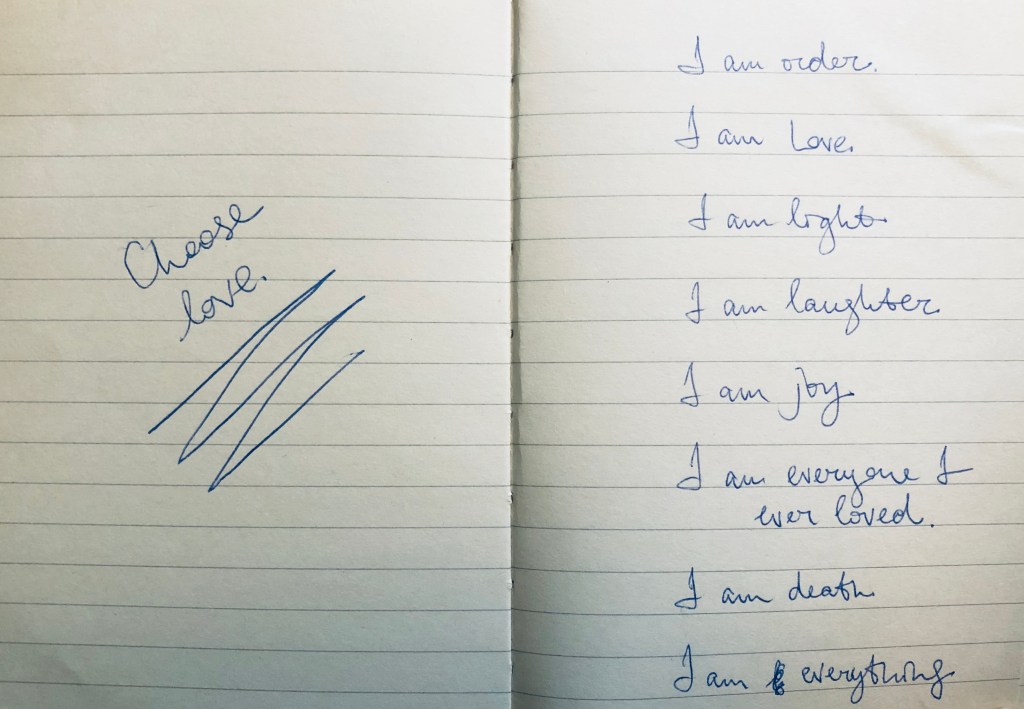 Choose
love.
I am order.
I am Love.
I am light
I am laughter.
I am joy
I am everyone I
ever loved.
I am death
I am everything